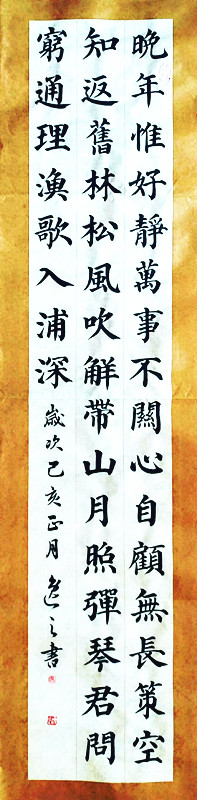 晚年惟好靜萬事不關心自顧無長策空
知返舊林松風吹觧帶山月照彈琴君問
窮通理漁歌入浦深
歲次己亥正月 之書